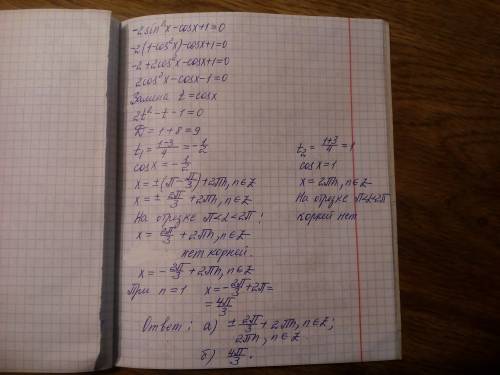 -2sin²x-cosx+1=0
-2(1-cos²x)-cosx+1=0
-2+2cos²x-cosx+1=0
2cos²x-cosx-1=0
Замена t=cosx
2t²-t-1=0
D=1+8=9
t₁=(1-3)/4=-1/2
cosx=-1/2
x=±(π-π/3)+2πn, n∈Z
x=± 2π/3 +2πn, n∈Z
На отрезке π<x<2π:
x= 2π/3 +2πn, n∈Z
нет корней.
x=-2π/3+2πn, n∈Z
При n=1 x=-2π/3+2π=
=4π/3
t₂=(1+3)/4=1
cosx=1
x=2πn, n∈Z
На отрезке π<x<2π
корней нет
Ответ: а) ± 2π/3 +2πn, n∈Z;
2πn, n∈Z
б) 4π/3.